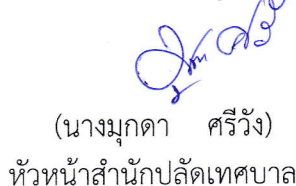 (นางมุกดา ศรีวัง)
หัวหน้าสำนักปลัดเทศบาล